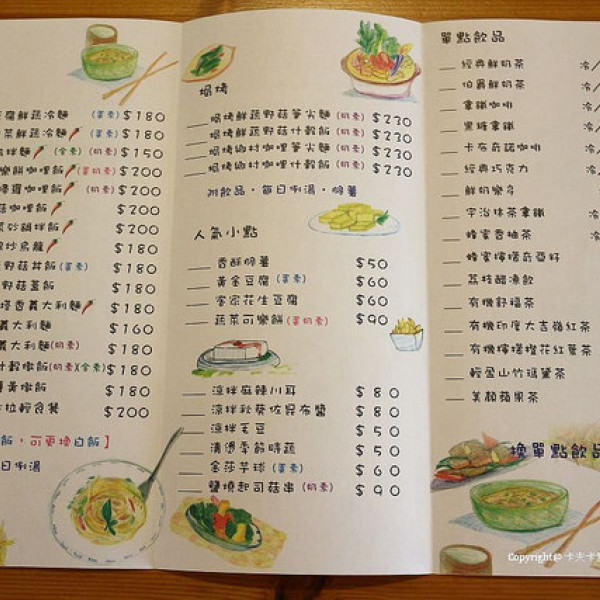 腐鮮蔬冷麵 (蛋素) $180
菜鮮蔬冷麵 (蛋素) $180
拌麵 (全素) $150
樂餅咖哩飯 (蛋奶素) $200
咖哩飯 (奶素) $200
咖哩飯 $200
砂鍋拌飯 $200
炒烏龍 $180
野菇丼飯 (蛋素) $180
野菇蓋飯 $180
塔香義大利麵 $180
義大利麵 $160
義大利麵 (奶素) $180
什穀燉飯 (奶素)(全素) $180
燉飯 $180
拉輕食餐 $200
飯，可更換白飯】
日例湯
焗烤
焗烤鮮蔬野菇筆尖麵 (奶素) $230
焗烤鮮蔬野菇什穀飯 (奶素) $230
焗烤鄉村咖哩筆尖麵 (奶素) $230
焗烤鄉村咖哩什穀飯 (奶素) $230
附飲品、節日例湯、脆薯
人氣小點
香酥脆薯 $50
黃金豆腐 (蛋素) $60
客家花生豆腐 $60
蔬菜可樂餅 (蛋奶素) $90
涼拌麻辣川耳 $80
涼拌秋葵佐昆布醬 $80
涼拌毛豆 $50
清燙季節時蔬 $50
金莎芋球 (蛋素) $60
鹽燒起司菇串 (奶素) $90
單點飲品
經典鮮奶茶 冷/
伯爵鮮奶茶 冷/
拿鐵咖啡 冷/
黑糖拿鐵 冷/
卡布奇諾咖啡 冷/
經典巧克力 冷/
鮮奶樂多
宇治抹茶拿鐵 冷
蜂蜜香柚茶 冷
蜂蜜檸檬奇亞籽
荔枝醋凍飲
有機舒福茶
有機印度大吉嶺紅茶
有機檸檬橙花紅葉茶
輕盈山竹瑪黛茶
美顏蘋果茶
換單點飲品
Copyright@ 卡夫卡